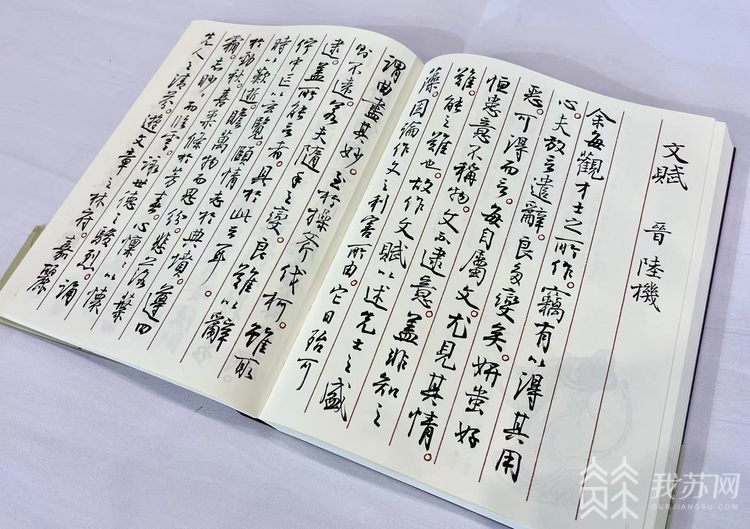 文賦 晉 陸機
余每觀才士之所作。竊有以得其用
心。夫放言遣辭。良多變矣。妍蚩好
惡。可得而言。每自屬文。尤見其情。
恒患意不稱物。文不逮意。蓋非知之
難。能之難也。故作文賦以述先士之盛
藻。因論作文之利害所由。它日殆可
謂曲盡其妙。至於操斧伐柯。雖取
則不遠。若夫隨手之變。良難以辭
逮。蓋所能言者。具於此云耳。
佇中區以玄覽。頤情志於典墳。遵四
時以歎逝。瞻萬物而思紛。悲落葉
於勁秋。喜柔條於芳春。心懍懍以懷
霜。志眇眇而臨雲。詠世德之駿烈。誦
先人之清芬。遊文章之林府。嘉麗
我苏网
OURJIANGSU.COM